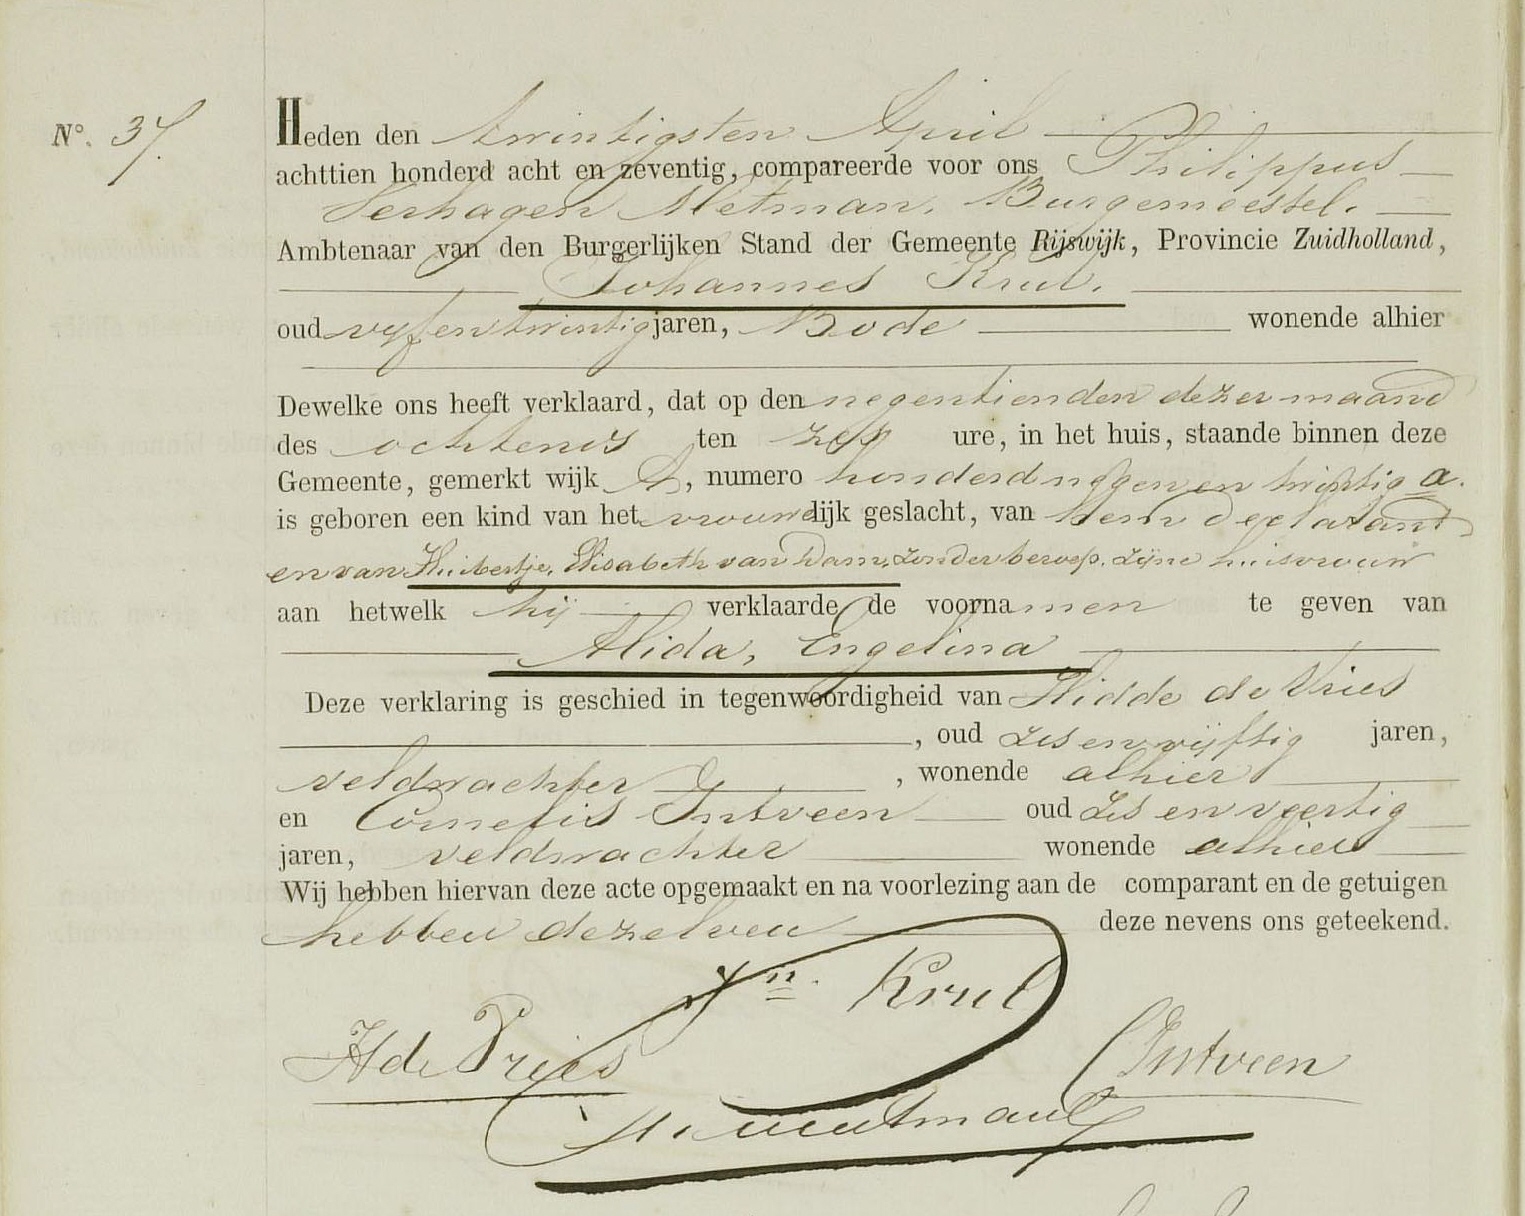 Nº. 37.
Heden den twintigsten April
achttien honderd acht en zeventig, compareerde voor ons Philippus
Verhagen Metman, Burgemeester,
Ambtenaar van den Burgerlijken Stand der Gemeente Rijswijk, Provincie Zuidholland,
Johannes Krul,
oud vyfentwintig jaren, Bode wonende alhier
Dewelke ons heeft verklaard, dat op den negentienden dezer maand
des ochtends ten zes ure, in het huis, staande binnen deze
Gemeente, gemerkt wijk A, numero honderd negen en twintig a.
is geboren een kind van het vrouwelijk geslacht, van hem declarant
en van Huibertje, Elisabeth van Dam, zonder beroep, zijne huisvrouw
aan hetwelk hij verklaarde de voornamen te geven van
Alida, Engelina
Deze verklaring is geschied in tegenwoordigheid van Hidde de Vries
, oud zesenvijftig jaren,
veldwachter , wonende alhier
en Cornelis Intveen oud zes en veertig
jaren, veldwachter wonende alhier
Wij hebben hiervan deze acte opgemaakt en na voorlezing aan de comparant en de getuigen
hebben dezelven deze nevens ons geteekend.
Jn. Krul
H de Vries
C Intveen
Metman